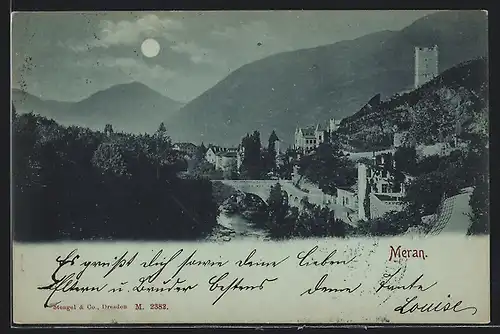 Meran.
Es grüßt dich sowie deine lieben
Eltern u. Bruder bestens deine Tante
Louise
Stengel & Co., Dresden M. 2383.